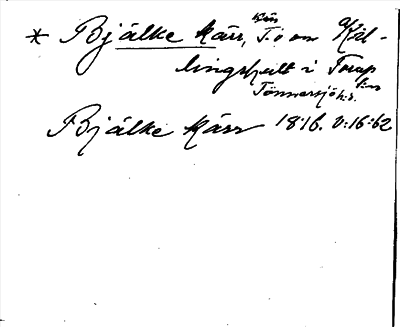 * Bjälke kärr, T. i om Käl-
lingshult i Torup
Tönnersjö h:s.
Bjälke kärr 1816. V:16:62